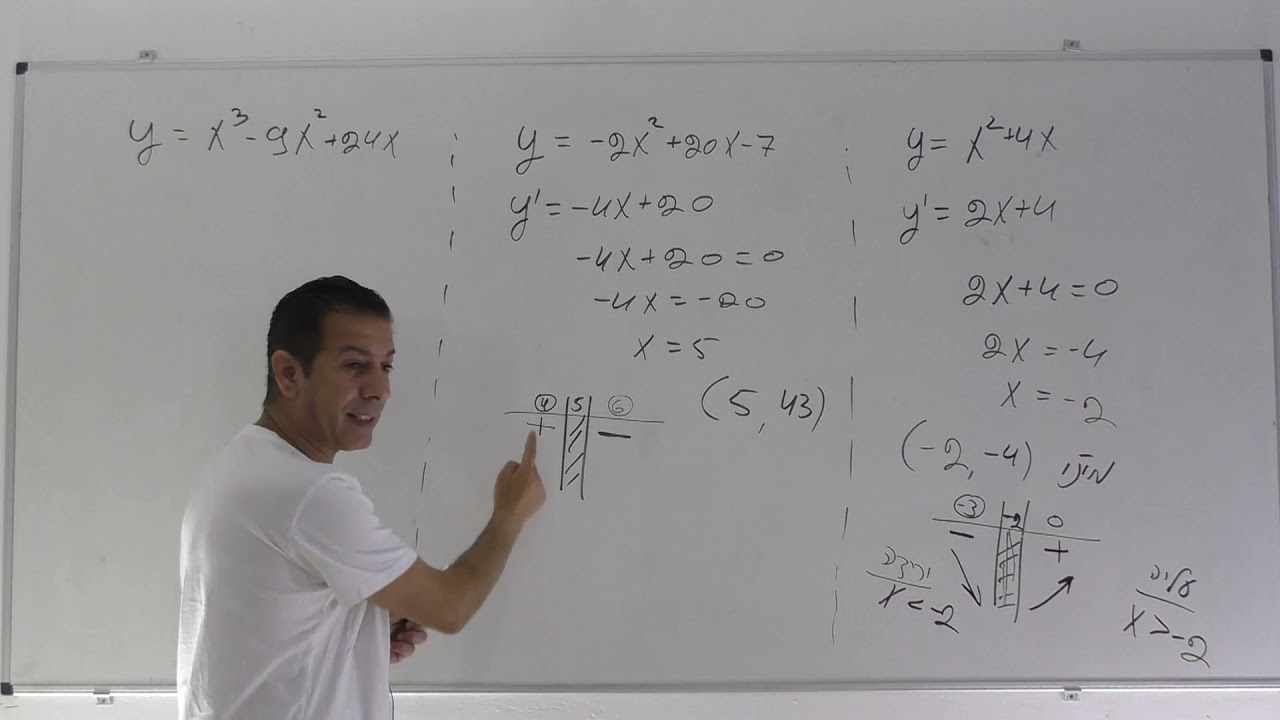 y = x³-9x²+24x
y = -2x²+20x-7
y' = -4x+20
-4x+20=0
-4x = -20
x = 5
(5, 43)
4 5 6
+ —
y = x²+4x
y' = 2x+4
2x+4=0
2x = -4
x = -2
(-2, -4) מינ'
-3 -2 0
— +
ירידה
x < -2
עליה
x > -2